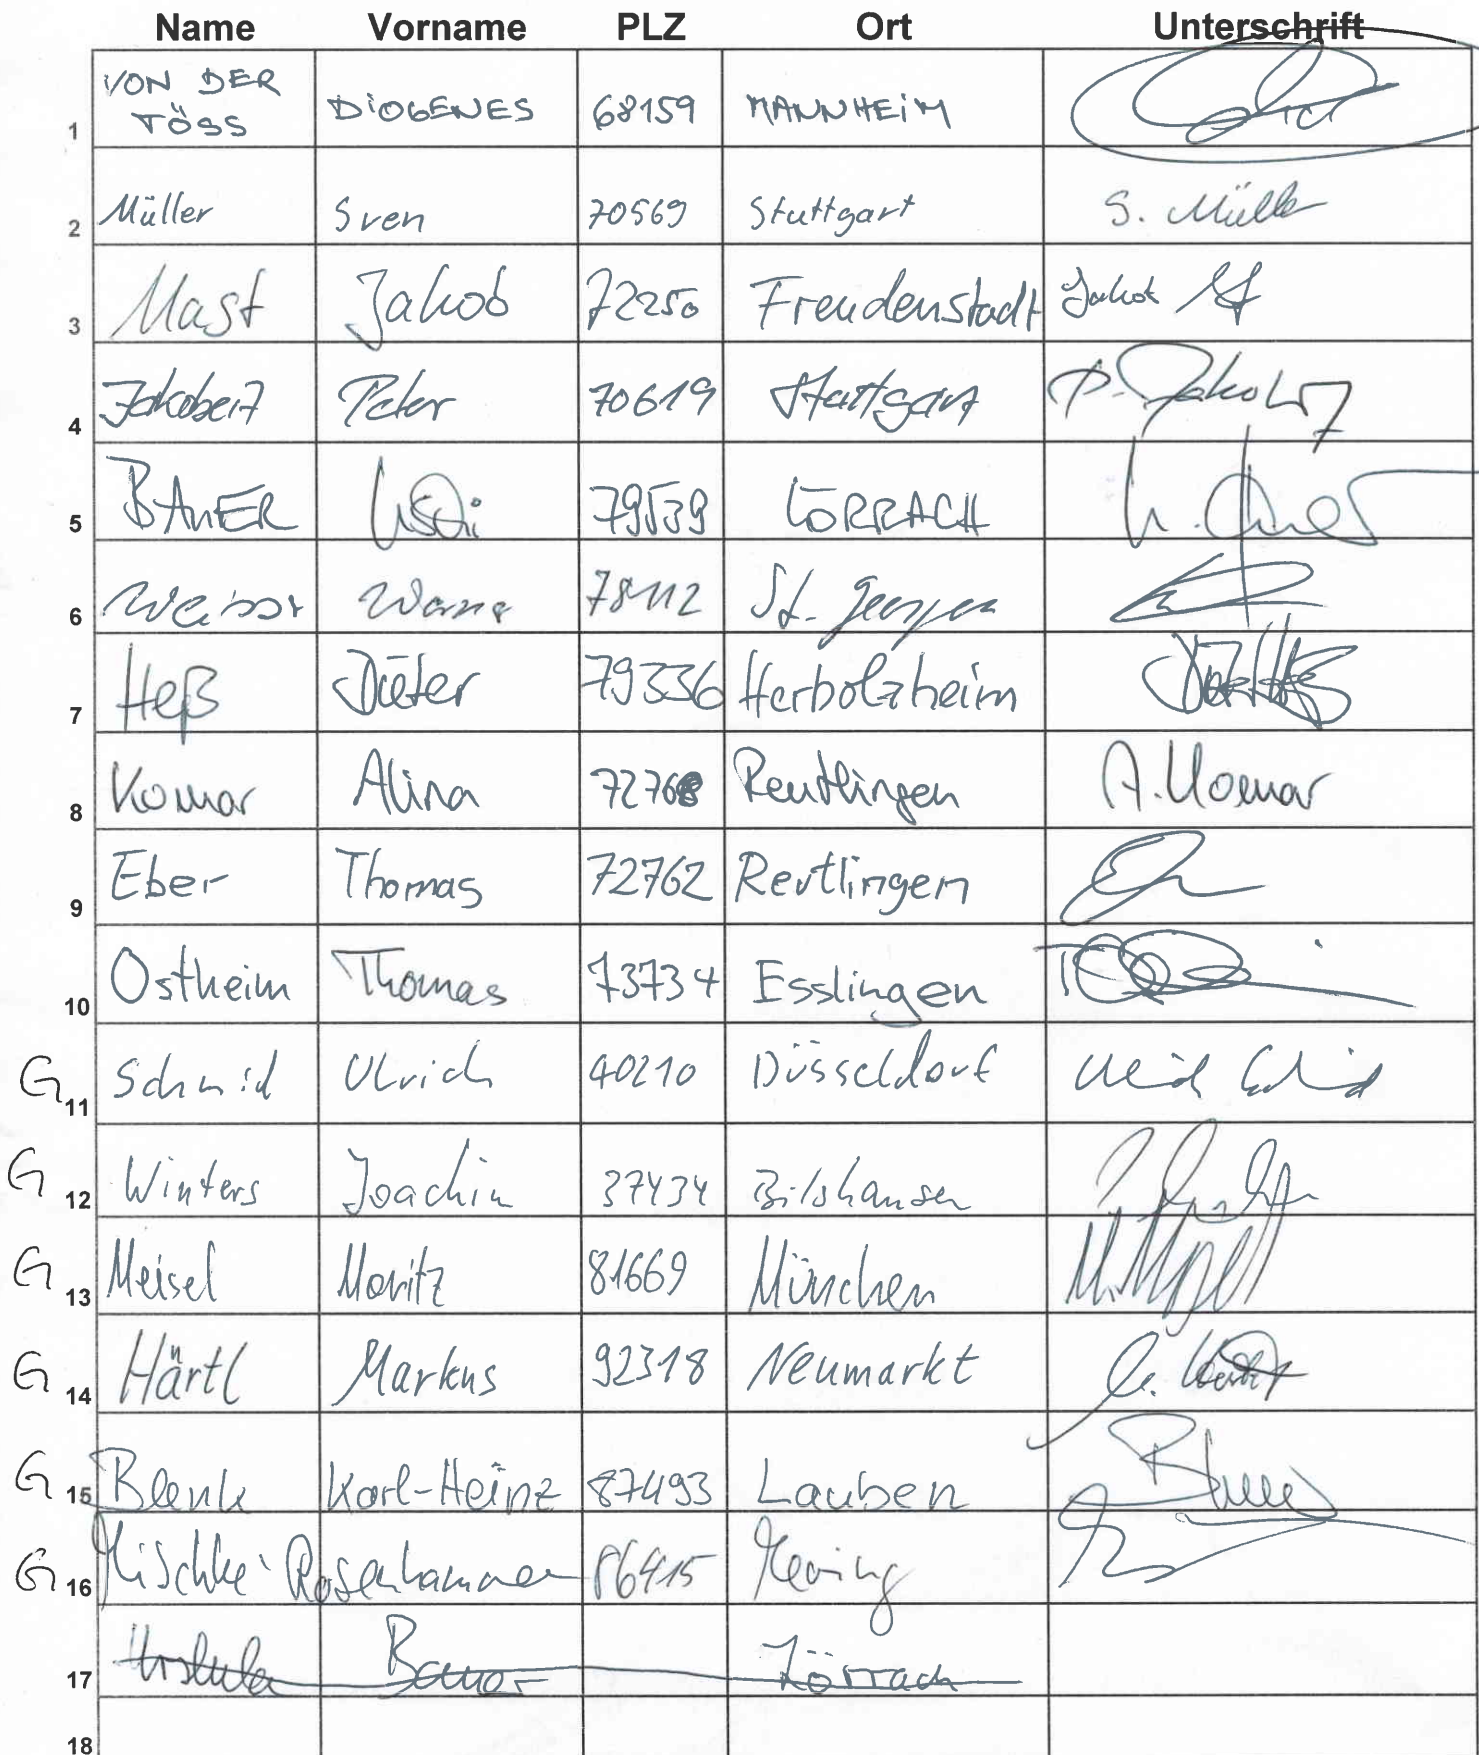 Name Vorname PLZ Ort Unterschrift
1 VON DER TÖSS DIOGENES 68159 MANNHEIM
2 Müller Sven 70569 Stuttgart S. Müller
3 Mast Jakob 72250 Freudenstadt Jakob
4 Jakobeit Peter 70619 Stuttgart P. Jakobeit
5 BAUER Uschi 79539 LÖRRACH
6 Weisser Werner 78112 St. Georgen
7 Heß Dieter 79336 Herbolzheim
8 Komar Alina 72768 Reutlingen A. Komar
9 Eber Thomas 72762 Reutlingen
10 Ostheim Thomas 73734 Esslingen
G 11 Schmid Ulrich 40210 Düsseldorf
G 12 Winters Joachim 37434 Bilshausen
G 13 Meisel Moritz 81669 München
G 14 Härtl Markus 92318 Neumarkt
G 15 Blenk Karl-Heinz 87493 Lauben
G 16 Mischke-Rosenhammer 86415 Mering
17 Ursula Bauer Lörrach
18